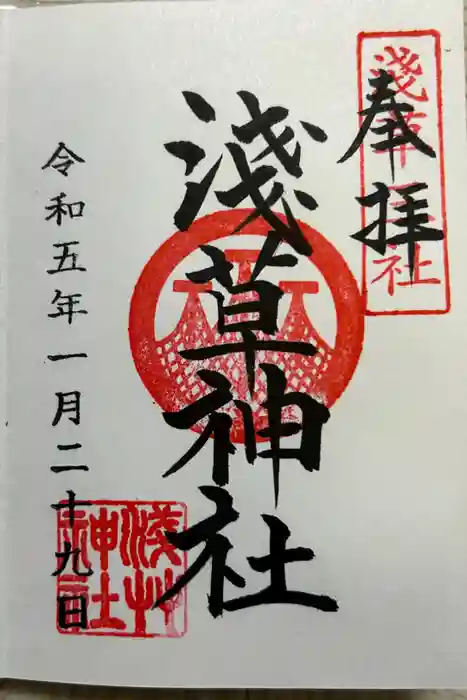 奉拝
淺草神社
淺草神社
令和五年一月二十九日
淺草
神社